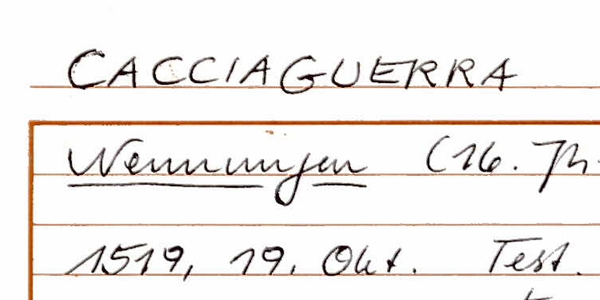 CACCIAGUERRA
Nennungen (16. Jh.
1519, 19. Okt. Test.